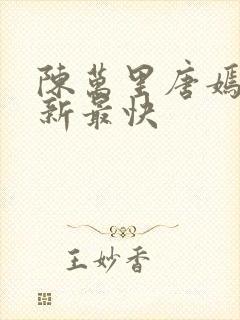 陳萬里唐嫣
新最快
王妙香